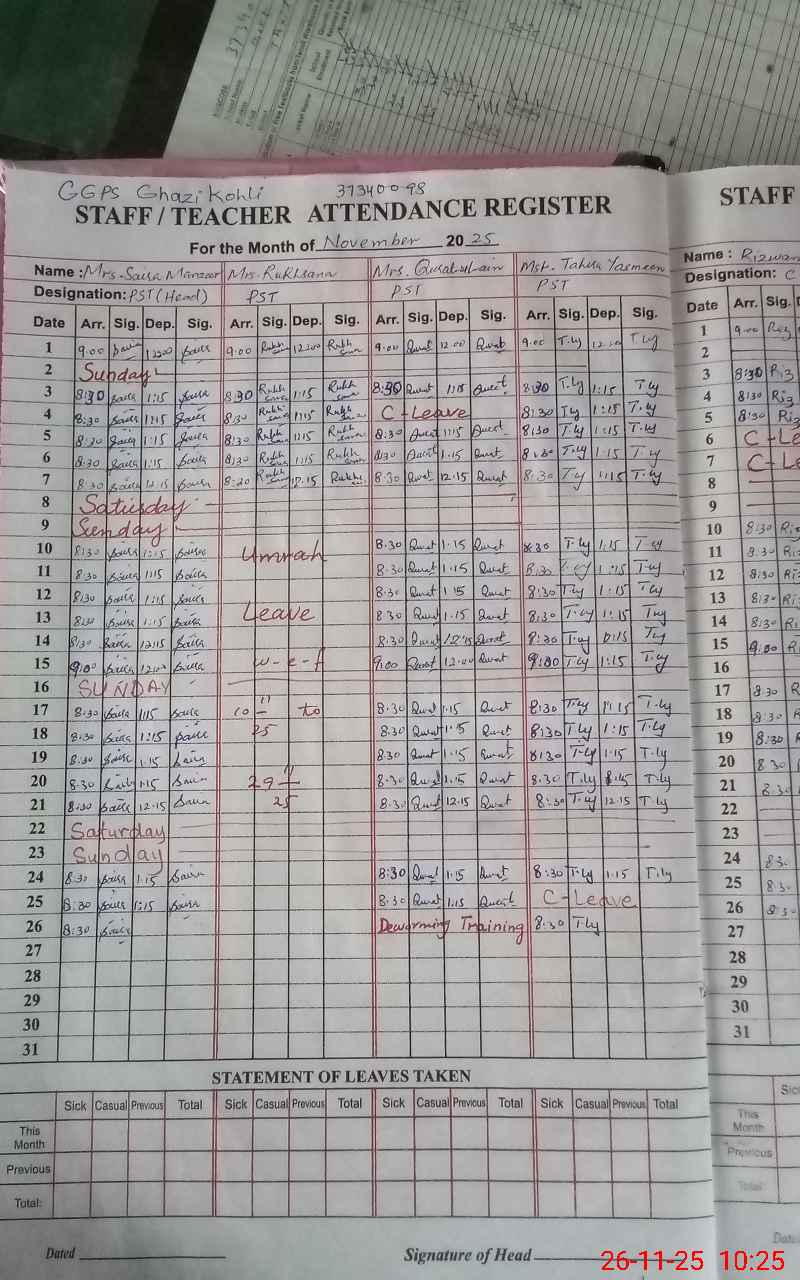 GGPS Ghazi Kohli 37340098
STAFF / TEACHER ATTENDANCE REGISTER
For the Month of November 2025
Name : Mrs. Saira Manzoor Mrs. Rukhsana Mrs. Quratulain Mst. Tahira Yasmeen
Designation: PST (Head) PST PST PST
Date Arr. Sig. Dep. Sig. Arr. Sig. Dep. Sig. Arr. Sig. Dep. Sig. Arr. Sig. Dep. Sig.
1 9.00 Saira 12:00 Saira 9.00 Rukhsana 12:00 Rukhsana 9.00 Qurat 12.00 Qurat 9.00 T.ly T.ly
2 Sunday
3 8:30 Saira 1:15 Saira 8:30 Rukhsana 1:15 Rukhsana 8:30 Qurat 1:15 Qurat 8:30 T.ly 1:15 T.ly
4 8:30 Saira 1:15 Saira 8:30 Rukhsana 1:15 Rukhsana C-Leave 8:30 T.ly 1:15 T.ly
5 8:30 Saira 1:15 Saira 8:30 Rukhsana 1:15 Rukhsana 8:30 Qurat 1:15 Qurat 8:30 T.ly 1:15 T.ly
6 8:30 Saira 1:15 Saira 8:30 Rukhsana 1:15 Rukhsana 8:30 Qurat 1.15 Qurat 8:30 T.ly 1:15 T.ly
7 8:30 Saira 12:15 Saira 8:30 Rukhsana 12.15 8:30 Qurat 12.15 Qurat 8:30 T.y T.ly
8 Saturday
9 Sunday
10 8:30 Saira 1:15 Saira Umrah 8:30 Qurat 1.15 Qurat 8:30 T.ly 1:15 T.ly
11 8:30 Saira 1:15 Saira 8:30 Qurat 1.15 Qurat 8:30 T.ly 1:15 T.ly
12 8:30 Saira 1:15 Saira 8:30 Qurat 1.15 Qurat 8:30 T.ly 1:15 T.ly
13 8:30 Saira 1:15 Saira Leave 8:30 Qurat 1.15 Qurat 8:30 T.ly 1:15 T.ly
14 8:30 Saira 12:15 Saira 8:30 Qurat 12.15 Qurat 8:30 T.ly T.ly
15 9:00 Saira 12:00 Saira w-e-f 9:00 Qurat 12:00 Qurat 9:00 T.ly 1:15 T.ly
16 SUNDAY
17 8:30 Saira 1:15 Saira 10 11 to 8:30 Qurat 1.15 Qurat 8:30 T.ly 1:15 T.ly
18 8:30 Saira 1:15 Saira 25 8:30 Qurat 1.15 Qurat 8:30 T.ly 1:15 T.ly
19 8:30 Saira 1.15 Saira 8:30 Qurat 1.15 Qurat 8:30 T.ly 1.15 T.ly
20 8.30 Saira 1.15 Saira 29 11 8:30 Qurat 1.15 Qurat 8.30 T.ly 1.15 T.ly
21 8:30 Saira 12.15 Saira 25 8:30 Qurat 12.15 Qurat 8:30 T.ly 12.15 T.ly
22 Saturday
23 Sunday
24 8:30 Saira 1.15 Saira 8:30 Qurat 1.15 Qurat 8:30 T.ly 1.15 T.ly
25 8:30 Saira 1:15 Saira 8:30 Qurat 1.15 Qurat C-Leave
26 8:30 Saira Deworming Training 8:30 T.ly
27
28
29
30
31
STATEMENT OF LEAVES TAKEN
Sick Casual Previous Total Sick Casual Previous Total Sick Casual Previous Total Sick Casual Previous Total
This Month
Previous
Total:
Dated Signature of Head
STAFF
Name : Rizwan
Designation: C
Date Arr. Sig.
1 9.00 Riz
2
3 8:30 Riz
4 8:30 Riz
5 8:30 Riz
6 C-Le
7 C-Le
8
9
10 8:30 Ri
11 8:30 Ri
12 8:30 Ri
13 8:30 Ri
14 8:30 Ri
15 9:00 Ri
16
17 8:30 R
18 8:30
19 8:30
20 8:30
21 8:30
22
23
24 8:30
25 8:30
26 8:30
27
28
29
30
31
Sick
This Month
Previous
Total
26-11-25 10:25